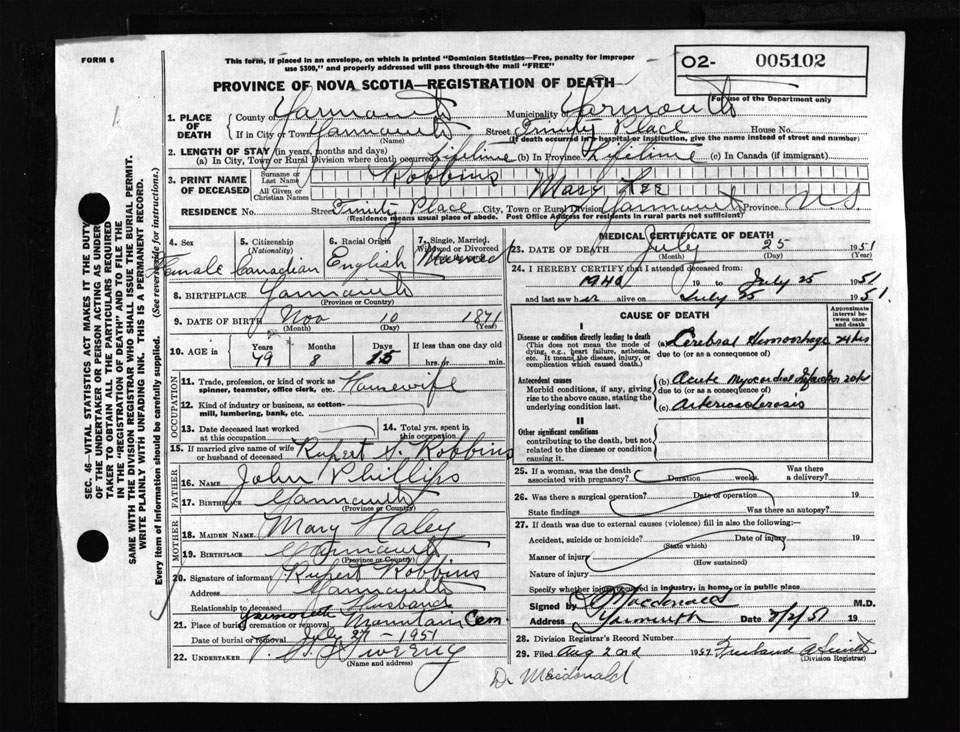 FORM 6
This form, if placed in an envelope, on which is printed "Dominion Statistics—Free, penalty for improper
use $300," and properly addressed will pass through the mail "FREE"
O2- 005102
For use of the Department only
PROVINCE OF NOVA SCOTIA—REGISTRATION OF DEATH
1. PLACE OF DEATH County of Yarmouth Municipality Yarmouth
If in City or Town Yarmouth (Name) Street Trinity Place House No.
(If death occurred in a hospital or institution, give name instead of street and number)
2. LENGTH OF STAY (in years, months and days)
(a) In City, Town or Rural Division where death occurred Lifetime (b) In Province Lifetime (c) In Canada (if immigrant)
3. PRINT NAME OF DECEASED Surname or Last Name Robbins
All Given or Christian Names Mary Lee
RESIDENCE No. Street Trinity Place City, Town or Rural Division Yarmouth Province N.S.
(Residence means usual place of abode. Post Office Address for residents in rural parts not sufficient)
4. Sex Female
5. Citizenship (Nationality) Canadian
6. Racial Origin English
7. Single, Married, Widowed or Divorced Married
8. BIRTHPLACE Yarmouth (Province or Country)
9. DATE OF BIRTH Nov (Month) 10 (Day) 1871 (Year)
10. AGE in Years 79 Months 8 Days 15 If less than one day old hrs. or min.
OCCUPATION
11. Trade, profession, or kind of work as spinner, teamster, office clerk, etc. Housewife
12. Kind of industry or business, as cotton-mill, lumbering, bank, etc.
13. Date deceased last worked at this occupation
14. Total yrs. spent in this occupation
15. If married give name of wife or husband of deceased Rupert S. Robbins
FATHER
16. Name John Phillips
17. Birthplace Yarmouth (Province or Country)
MOTHER
18. MAIDEN NAME Mary Haley
19. BIRTHPLACE Yarmouth (Province or Country)
20. Signature of informant Rupert Robbins
Address Yarmouth
Relationship to deceased Husband
21. Place of burial, cremation or removal Yarmouth Mountain Cem.
Date of burial or removal July 27-1951
22. UNDERTAKER Sweeny
(Name and address)
MEDICAL CERTIFICATE OF DEATH
23. DATE OF DEATH July (Month) 25 (Day) 1951 (Year)
24. I HEREBY CERTIFY that I attended deceased from:
1940 19 to July 25 1951
and last saw her alive on July 25 1951.
CAUSE OF DEATH
Approximate interval between onset and death
I
Disease or condition directly leading to death
(This does not mean the mode of dying, e.g., heart failure, asthenia, etc. It means the disease, injury, or complication which caused death.)
(a) Cerebral Hemorrhage 24 hrs
due to (or as a consequence of)
Antecedent causes
Morbid conditions, if any, giving rise to the above cause, stating the underlying condition last.
(b) Acute Myocardial Infarction
due to (or as a consequence of)
(c) Arteriosclerosis
II
Other significant conditions
contributing to the death, but not related to the disease or condition causing it.
25. If a woman, was the death associated with pregnancy? Duration weeks. Was there a delivery?
26. Was there a surgical operation? Date of operation 19
State findings Was there an autopsy?
27. If death was due to external causes (violence) fill in also the following:—
Accident, suicide or homicide? (State which) Date of injury 19
Manner of injury (How sustained)
Nature of injury
Specify whether injury occurred in industry, in home, or in public place
Signed by Macdonald M.D.
Address Yarmouth Date 19
28. Division Registrar's Record Number
29. Filed Aug 2nd 1951 (Division Registrar)
Dr Macdonald
SEC. 46—VITAL STATISTICS ACT MAKES IT THE DUTY
OF THE UNDERTAKER OR PERSON ACTING AS UNDER-
TAKER TO OBTAIN ALL THE PARTICULARS REQUIRED
IN THE "REGISTRATION OF DEATH" AND TO FILE THE
SAME WITH THE DIVISION REGISTRAR WHO SHALL ISSUE THE BURIAL PERMIT.
WRITE PLAINLY WITH UNFADING INK. THIS IS A PERMANENT RECORD.
Every item of information should be carefully supplied. (See reverse side for instructions.)